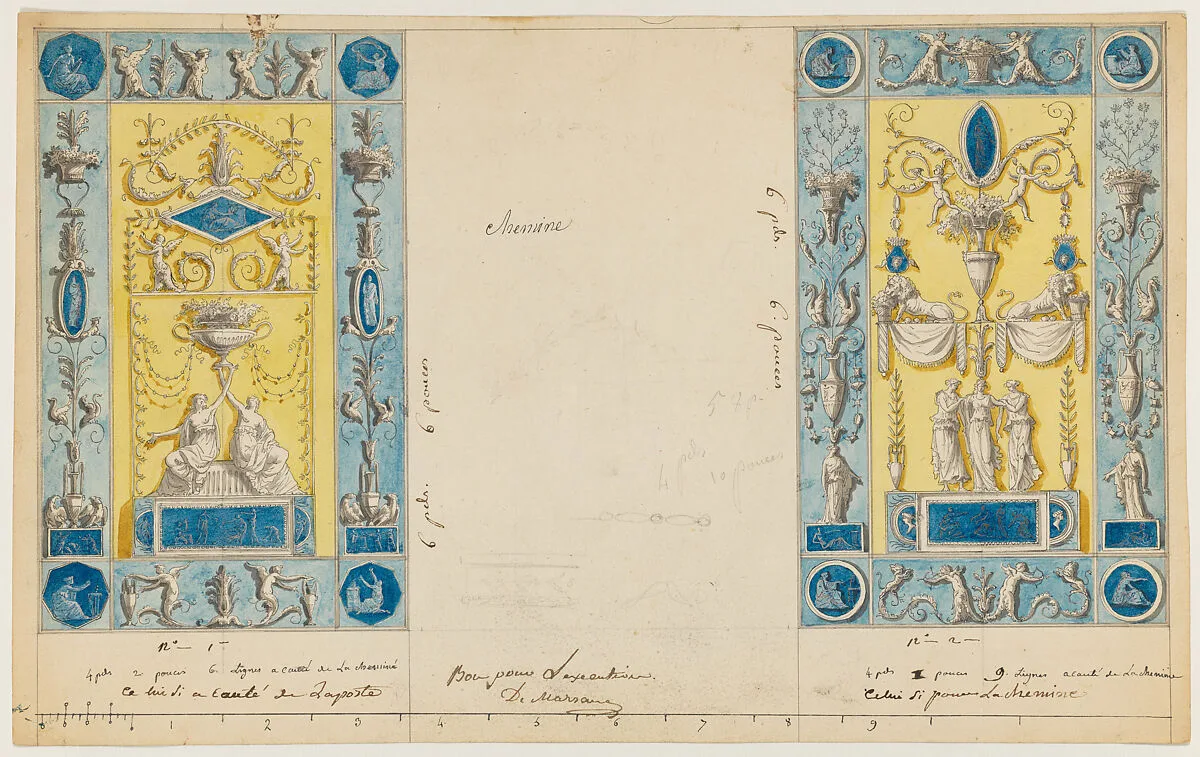 chemine
6 pds. 6 pouces
6 pds. 6 pouces
5 4 p.
4 pds
10 pouces
No 1
4 pds 2 pouces 6 Lignes a cauté de La cheminé
Ce lui di a cauté de Laporte
Bon pour Lexecution
De Marsan
No 2
4 pds 1 pouces 9 Lignes a cauté de La chemine
Celui di pour La chemine
0 6 1 2 3 4 5 6 7 8 9